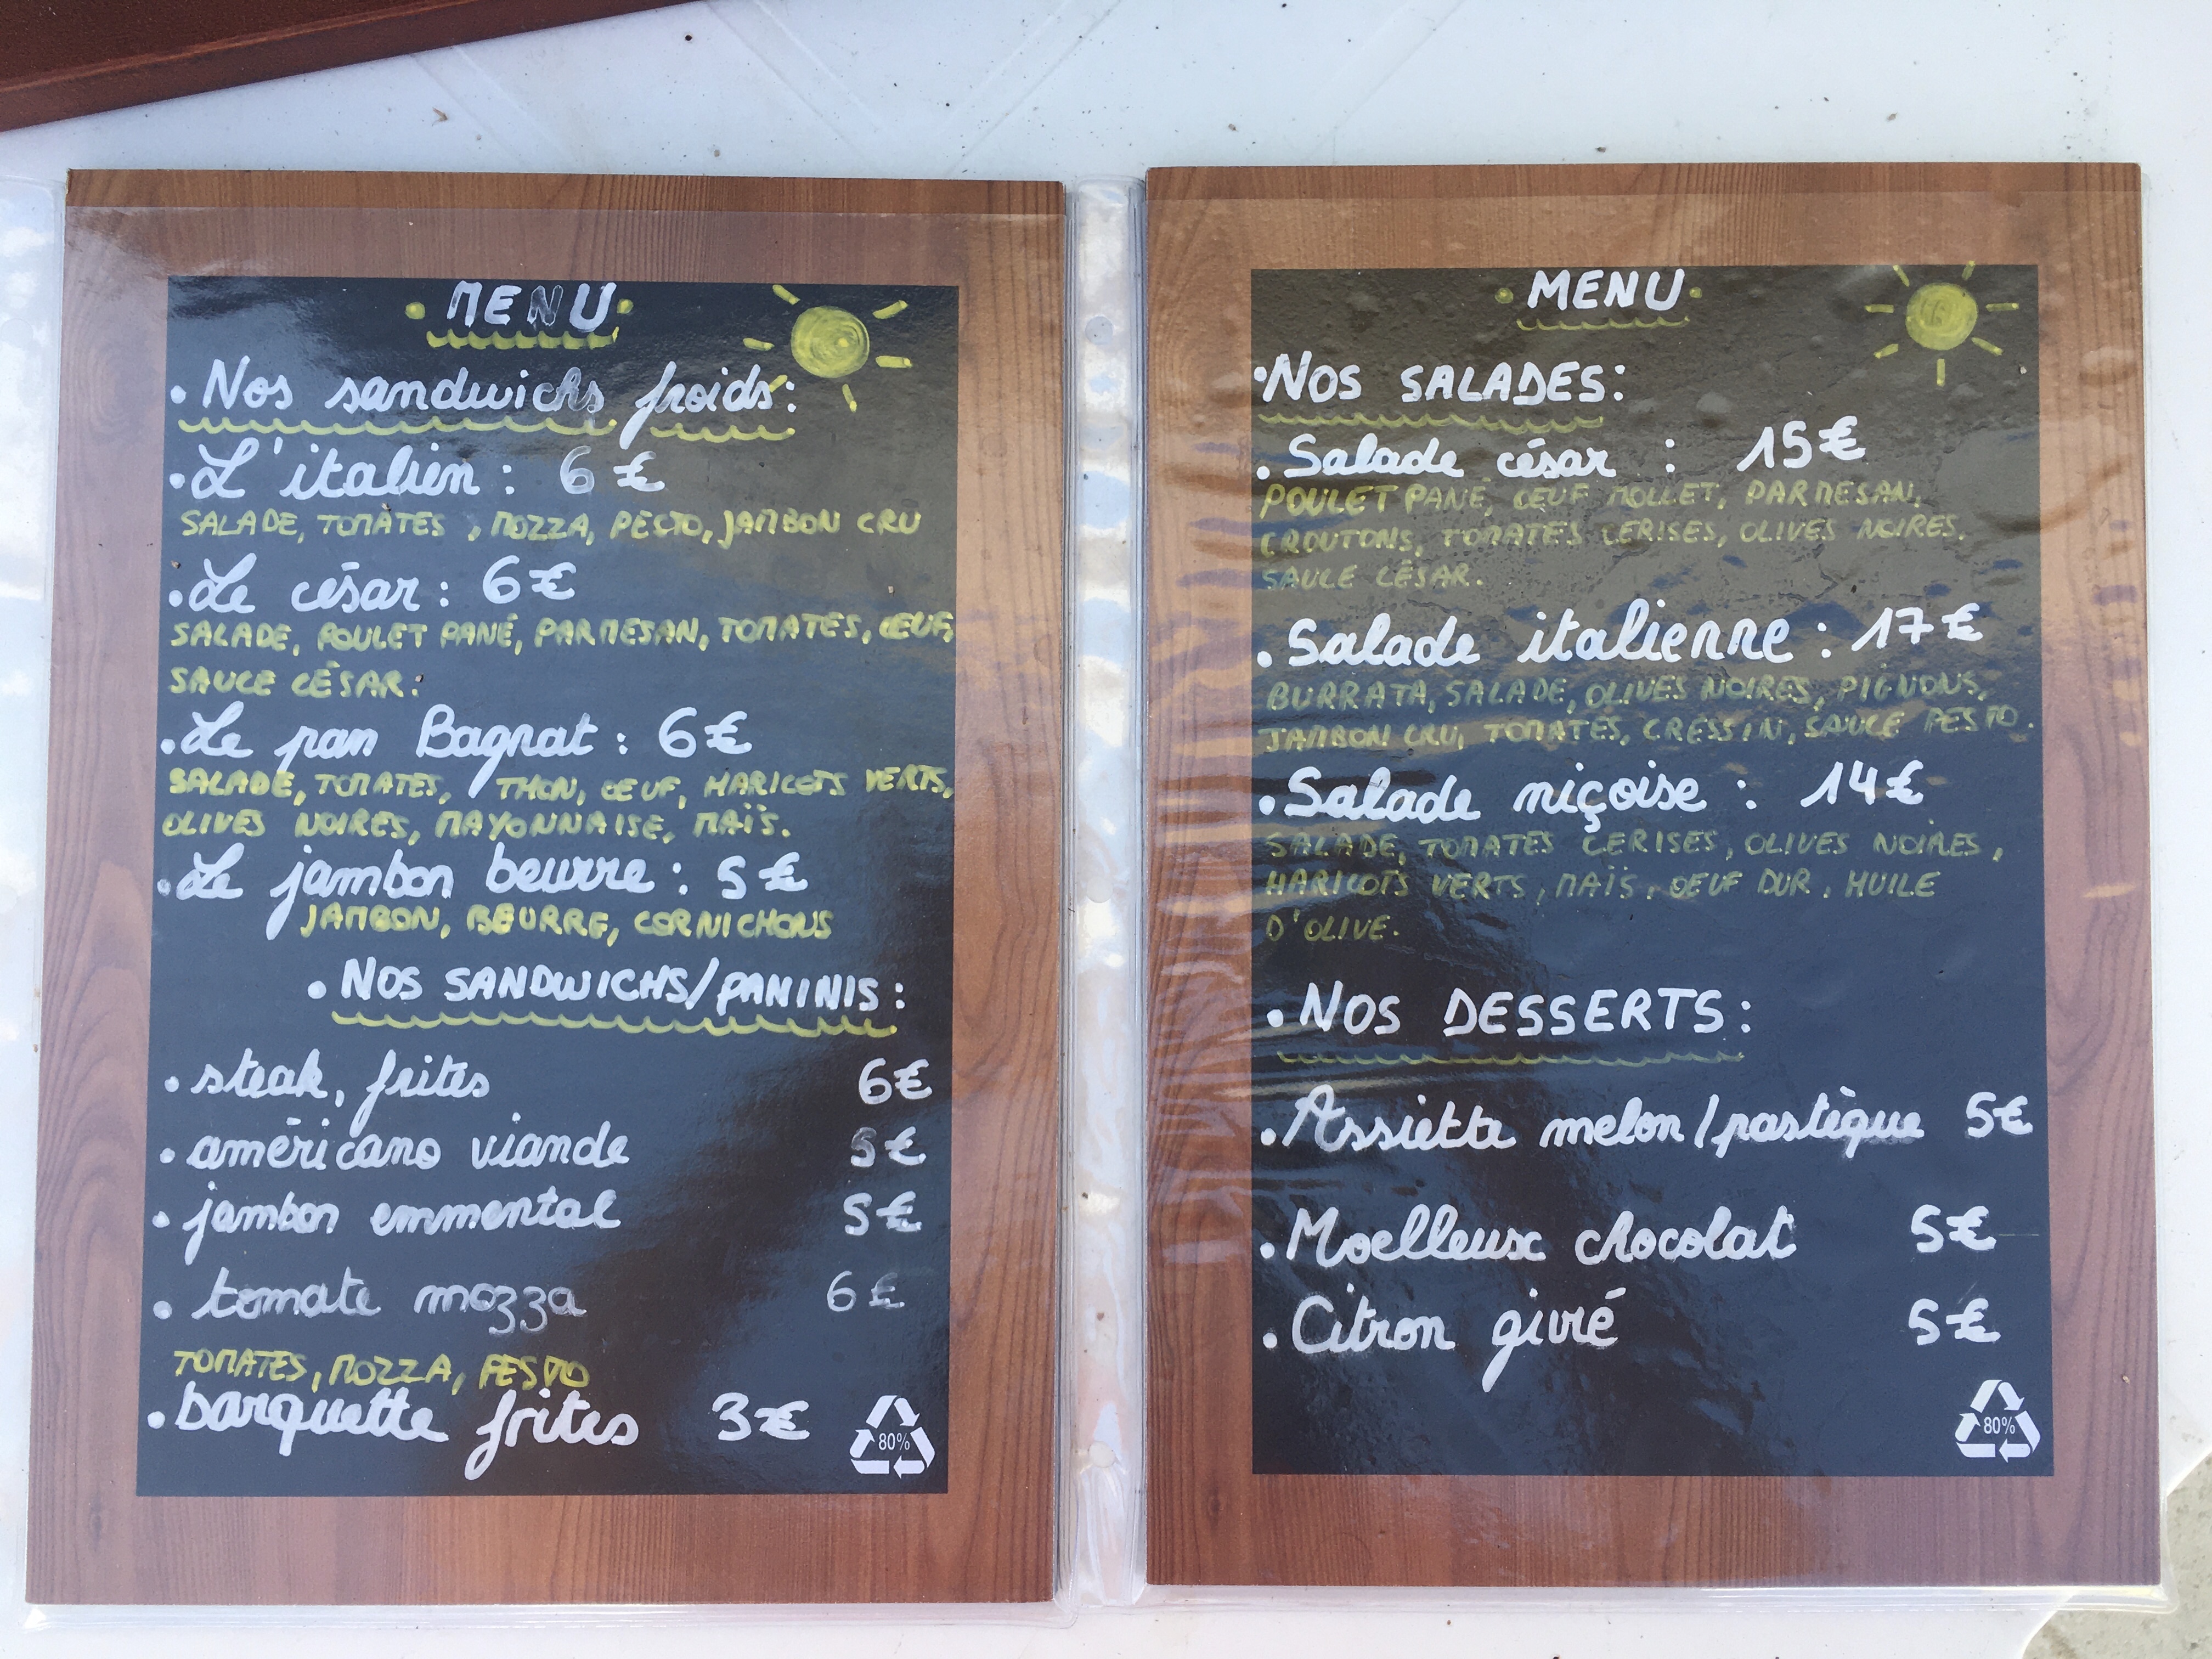 • MENU •
• Nos sandwichs froids:
• L'italien : 6 €
SALADE, TOMATES , MOZZA, PESTO, JAMBON CRU
• Le césar : 6 €
SALADE, POULET PANÉ, PARMESAN, TOMATES, ŒUF,
SAUCE CÉSAR.
• Le pan Bagnat : 6 €
SALADE, TOMATES, THON, ŒUF, HARICOTS VERTS,
OLIVES NOIRES, MAYONNAISE, MAÏS.
• Le jambon beurre : 5 €
JAMBON, BEURRE, CORNICHONS
• NOS SANDWICHS/PANINIS :
• steak, frites 6 €
• américano viande 5 €
• jambon emmental 5 €
• tomate mozza 6 €
TOMATES, MOZZA, PESTO
• barquette frites 3 €
80%
• MENU •
• NOS SALADES :
• Salade césar : 15 €
POULET PANÉ, ŒUF MOLLET, PARMESAN,
CROUTONS, TOMATES CERISES, OLIVES NOIRES.
SAUCE CÉSAR.
• Salade italienne : 17 €
BURRATA, SALADE, OLIVES NOIRES, PIGNONS,
JAMBON CRU, TOMATES, CRESSIN, SAUCE PESTO.
• Salade niçoise : 14 €
SALADE, TOMATES CERISES, OLIVES NOIRES,
HARICOTS VERTS, MAÏS, ŒUF DUR, HUILE
D'OLIVE.
• NOS DESSERTS :
• Assiette melon/pastèque 5 €
• Moelleux chocolat 5 €
• Citron givré 5 €
80%